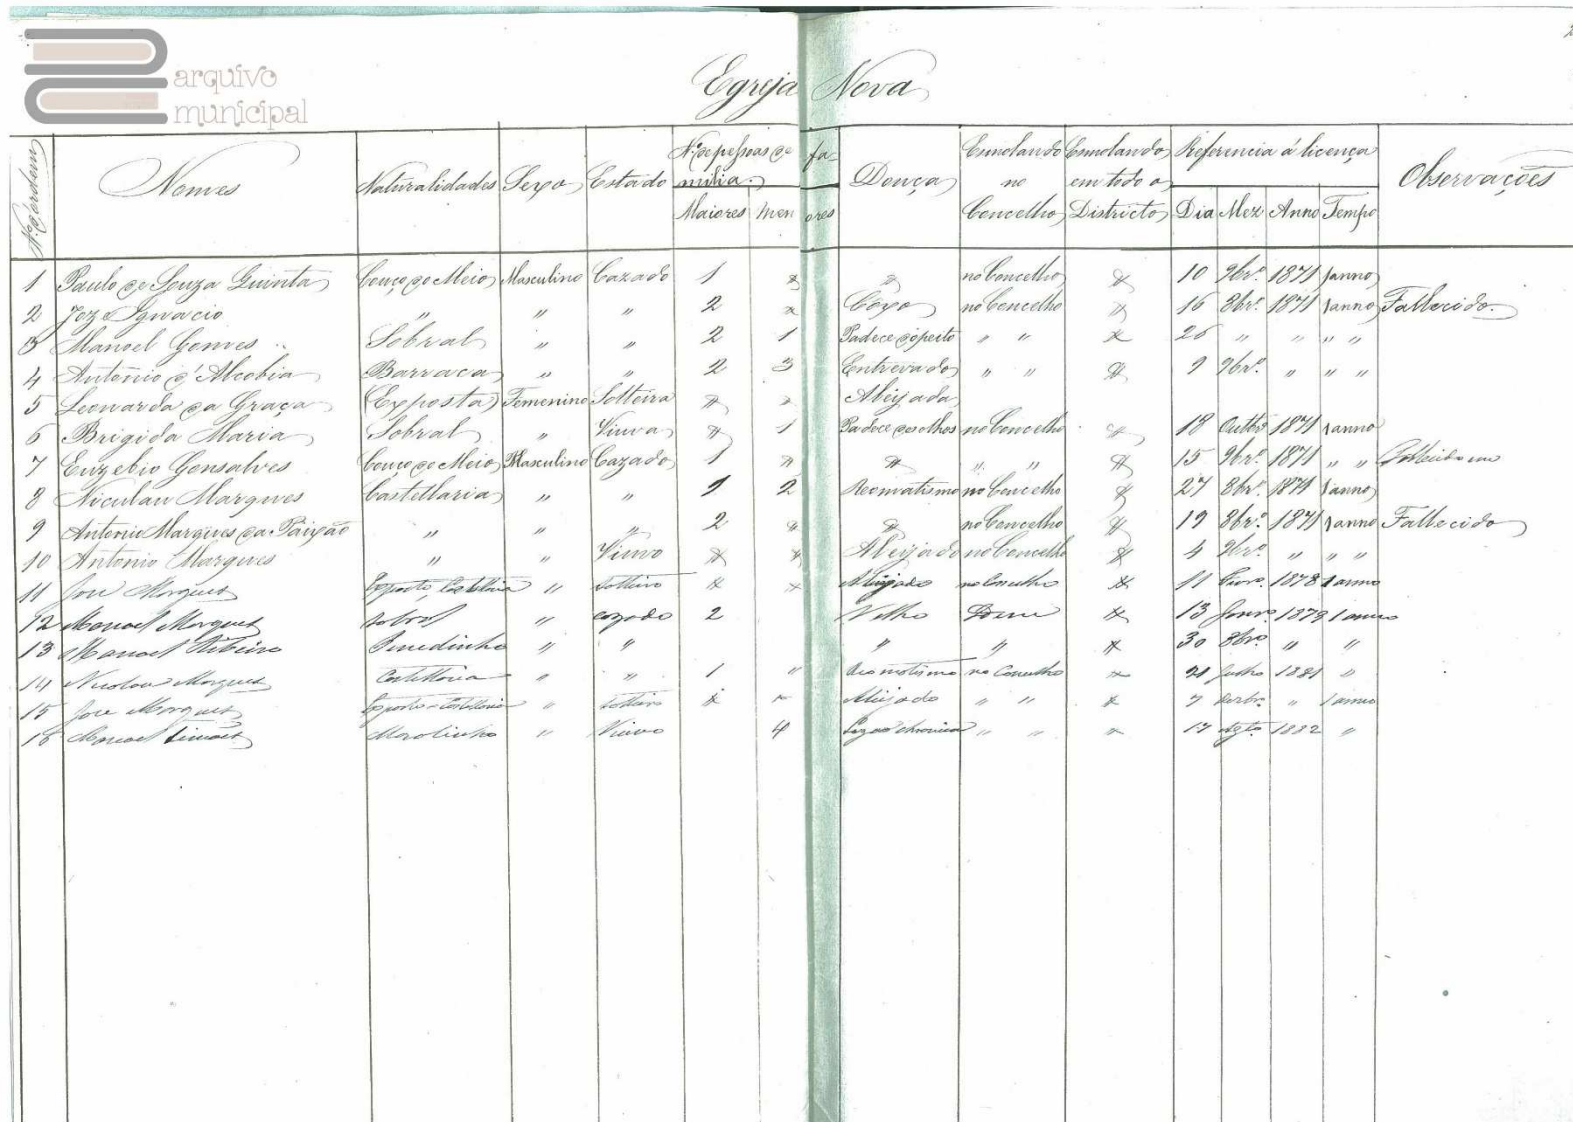 arquivo
municipal
Egreja Nova
Nº de ordem Nomes Naturalidades Sexo Estado Nº de pessoas de familia Maiores Menores Doença Esmolando no Concelho Esmolando em todo o Districto Referencia á licença Dia Mez Anno Tempo Observações
1 Paulo de Souza Quinta Couço do Meio Masculino Cazado 1 " " no Concelho " 10 9brº 1871 1 anno
2 Joze Ignacio " " " 2 " Coxo no Concelho " 16 8brº 1871 1 anno Fallecido
3 Manoel Gomes Sobral " " 2 1 Padece do peito " " " 26 " " " "
4 Antonio d'Alcobia Barraca " " 2 3 Entrevado " " " 9 9brº " " "
5 Leonarda da Graça (Exposta) Femenino Solteira " " Aleijada
6 Brigida Maria Sobral " Viuva " 1 Padece dos olhos no Concelho " 18 1871 1 anno
7 Euzebio Gonsalves Couço do Meio Masculino Cazado 1 " " " " " 15 9brº 1871 " "
8 Niculau Marques Castellaria " " 1 2 Reomatismo no Concelho " 27 8brº 1871 1 anno
9 Antonio Marques da Paixão " " " 2 " " no Concelho " 19 8brº 1871 1 anno Fallecido
10 Antonio Marques " " Viuvo " " Aleijado no Concelho " 4 9brº " " "
11 Jose Marques Exposto, Castellaria " Solteiro " " Aleijado no Concelho " 11 1878 1 anno
12 Manoel Marques Sobral " cazado 2 Velho " 13 Janrº 1879 1 anno
13 Manoel Ribeiro Penedinho " " " " " 30 8brº " "
14 Nicolau Marques Castellaria " " 1 " Reomatismo no Concelho " 21 Julho 1881 "
15 Jose Marques Exposto - Castellaria " Solteiro " " Aleijado " " " 7 " 1 anno
16 Manoel Simões " Viuvo 4 " " " 17 Agto 1882 "